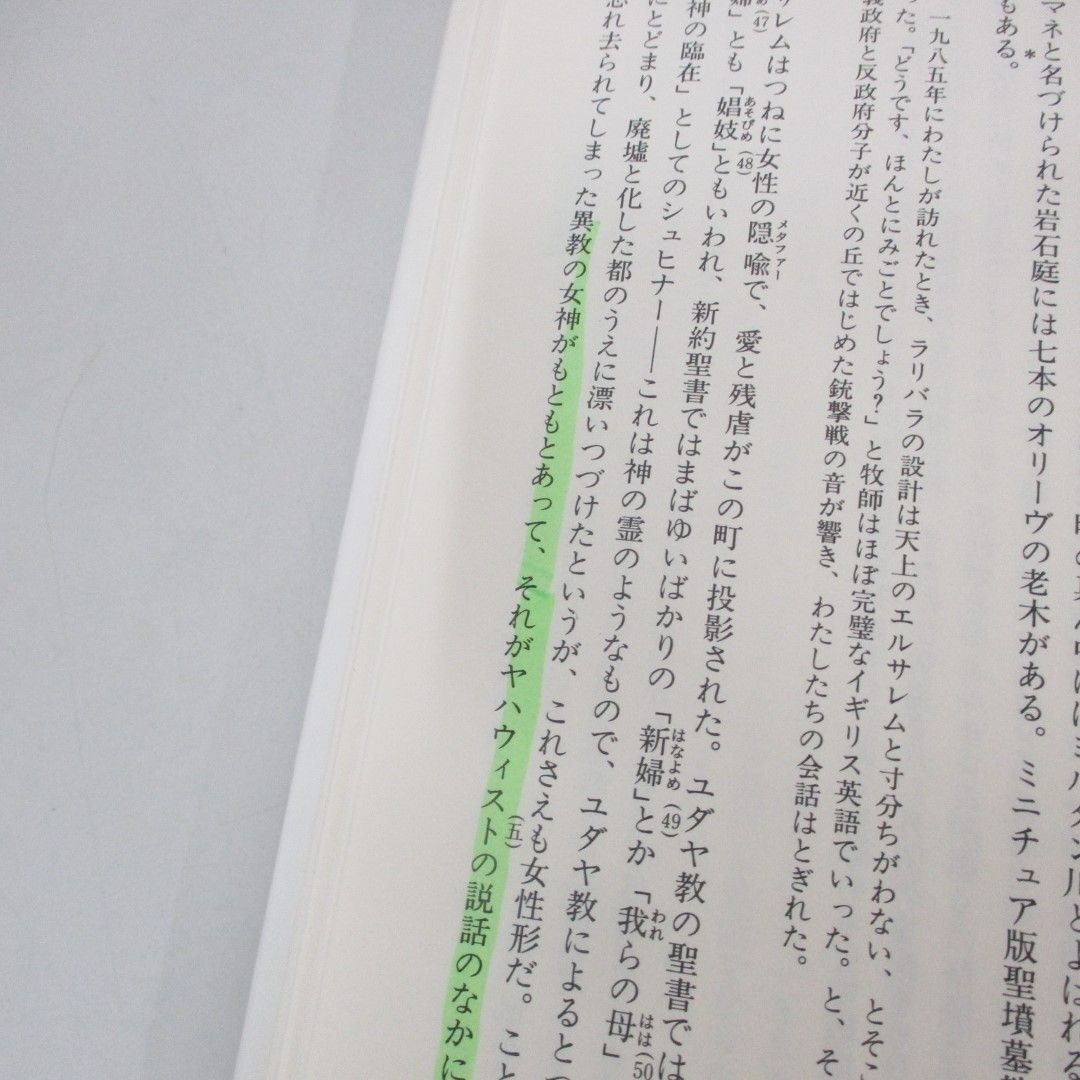 はミルタン川とよばれる
マネと名づけられた岩石庭には七本のオリーヴの老木がある。ミニチュア版聖墳墓
もある。
*
一九八五年にわたしが訪れたとき、ラリバラの設計は天上のエルサレムと寸分ちがわない、とそこ
った。「どうです、ほんとにみごとでしょう？」と牧師はほぼ完璧なイギリス英語でいった。と、そ
義政府と反政府分子が近くの丘ではじめた銃撃戦の音が響き、わたしたちの会話はとぎれた。
サレムはつねに女性の隠喩で、愛と残虐がこの町に投影された。ユダヤ教の聖書では
メタファー
(47)
婦」とも「娼妓」ともいわれ、新約聖書ではまばゆいばかりの「新婦」とか「我らの母」
あそびめ
(48)
はなよめ
(49)
われ
はは
(50
神の臨在」としてのシュヒナー――これは神の霊のようなもので、ユダヤ教によるとつ
にとどまり、廃墟と化した都のうえに漂いつづけたというが、これさえも女性形だ。こと
忘れ去られてしまった異教の女神がもともとあって、それがヤハウィストの説話のなかに
(五)